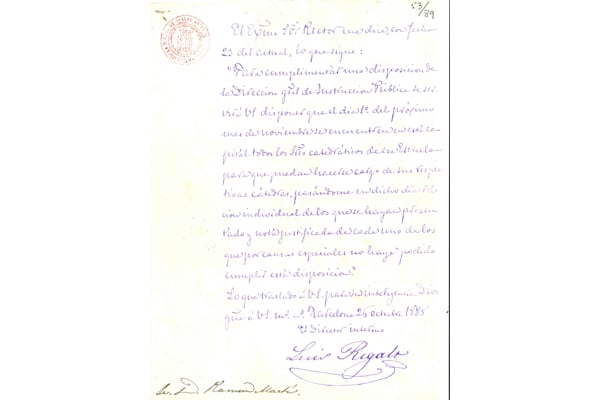 53/89
El Exmo Sór Rector me dice, con fecha
23 del actual, lo que sigue:
"Para cumplimentar una disposicion de
la Direccion gral de Instruccion Pública se ser-
virá V.S. disponer que el dia 1º. del próximo
mes de noviembre se encuentren en esta ca-
pital todos los Sres catedráticos de esa Escuela
para que puedan hacerse cargo de sus respec-
tivas cátedras, pasándome en dicho dia rela-
cion individual de los que se hayan presen-
tado y nota justificada de cada uno de los
que por causas especiales no haya podido
cumplir esta disposicion."
Lo que traslado á V.S. para su inteligencia Dios
gue á V.S. m.s a.s Barcelona 26 octubre 1885
El Director interino
Luis Rigalt
Sr. D. Ramon Martí.